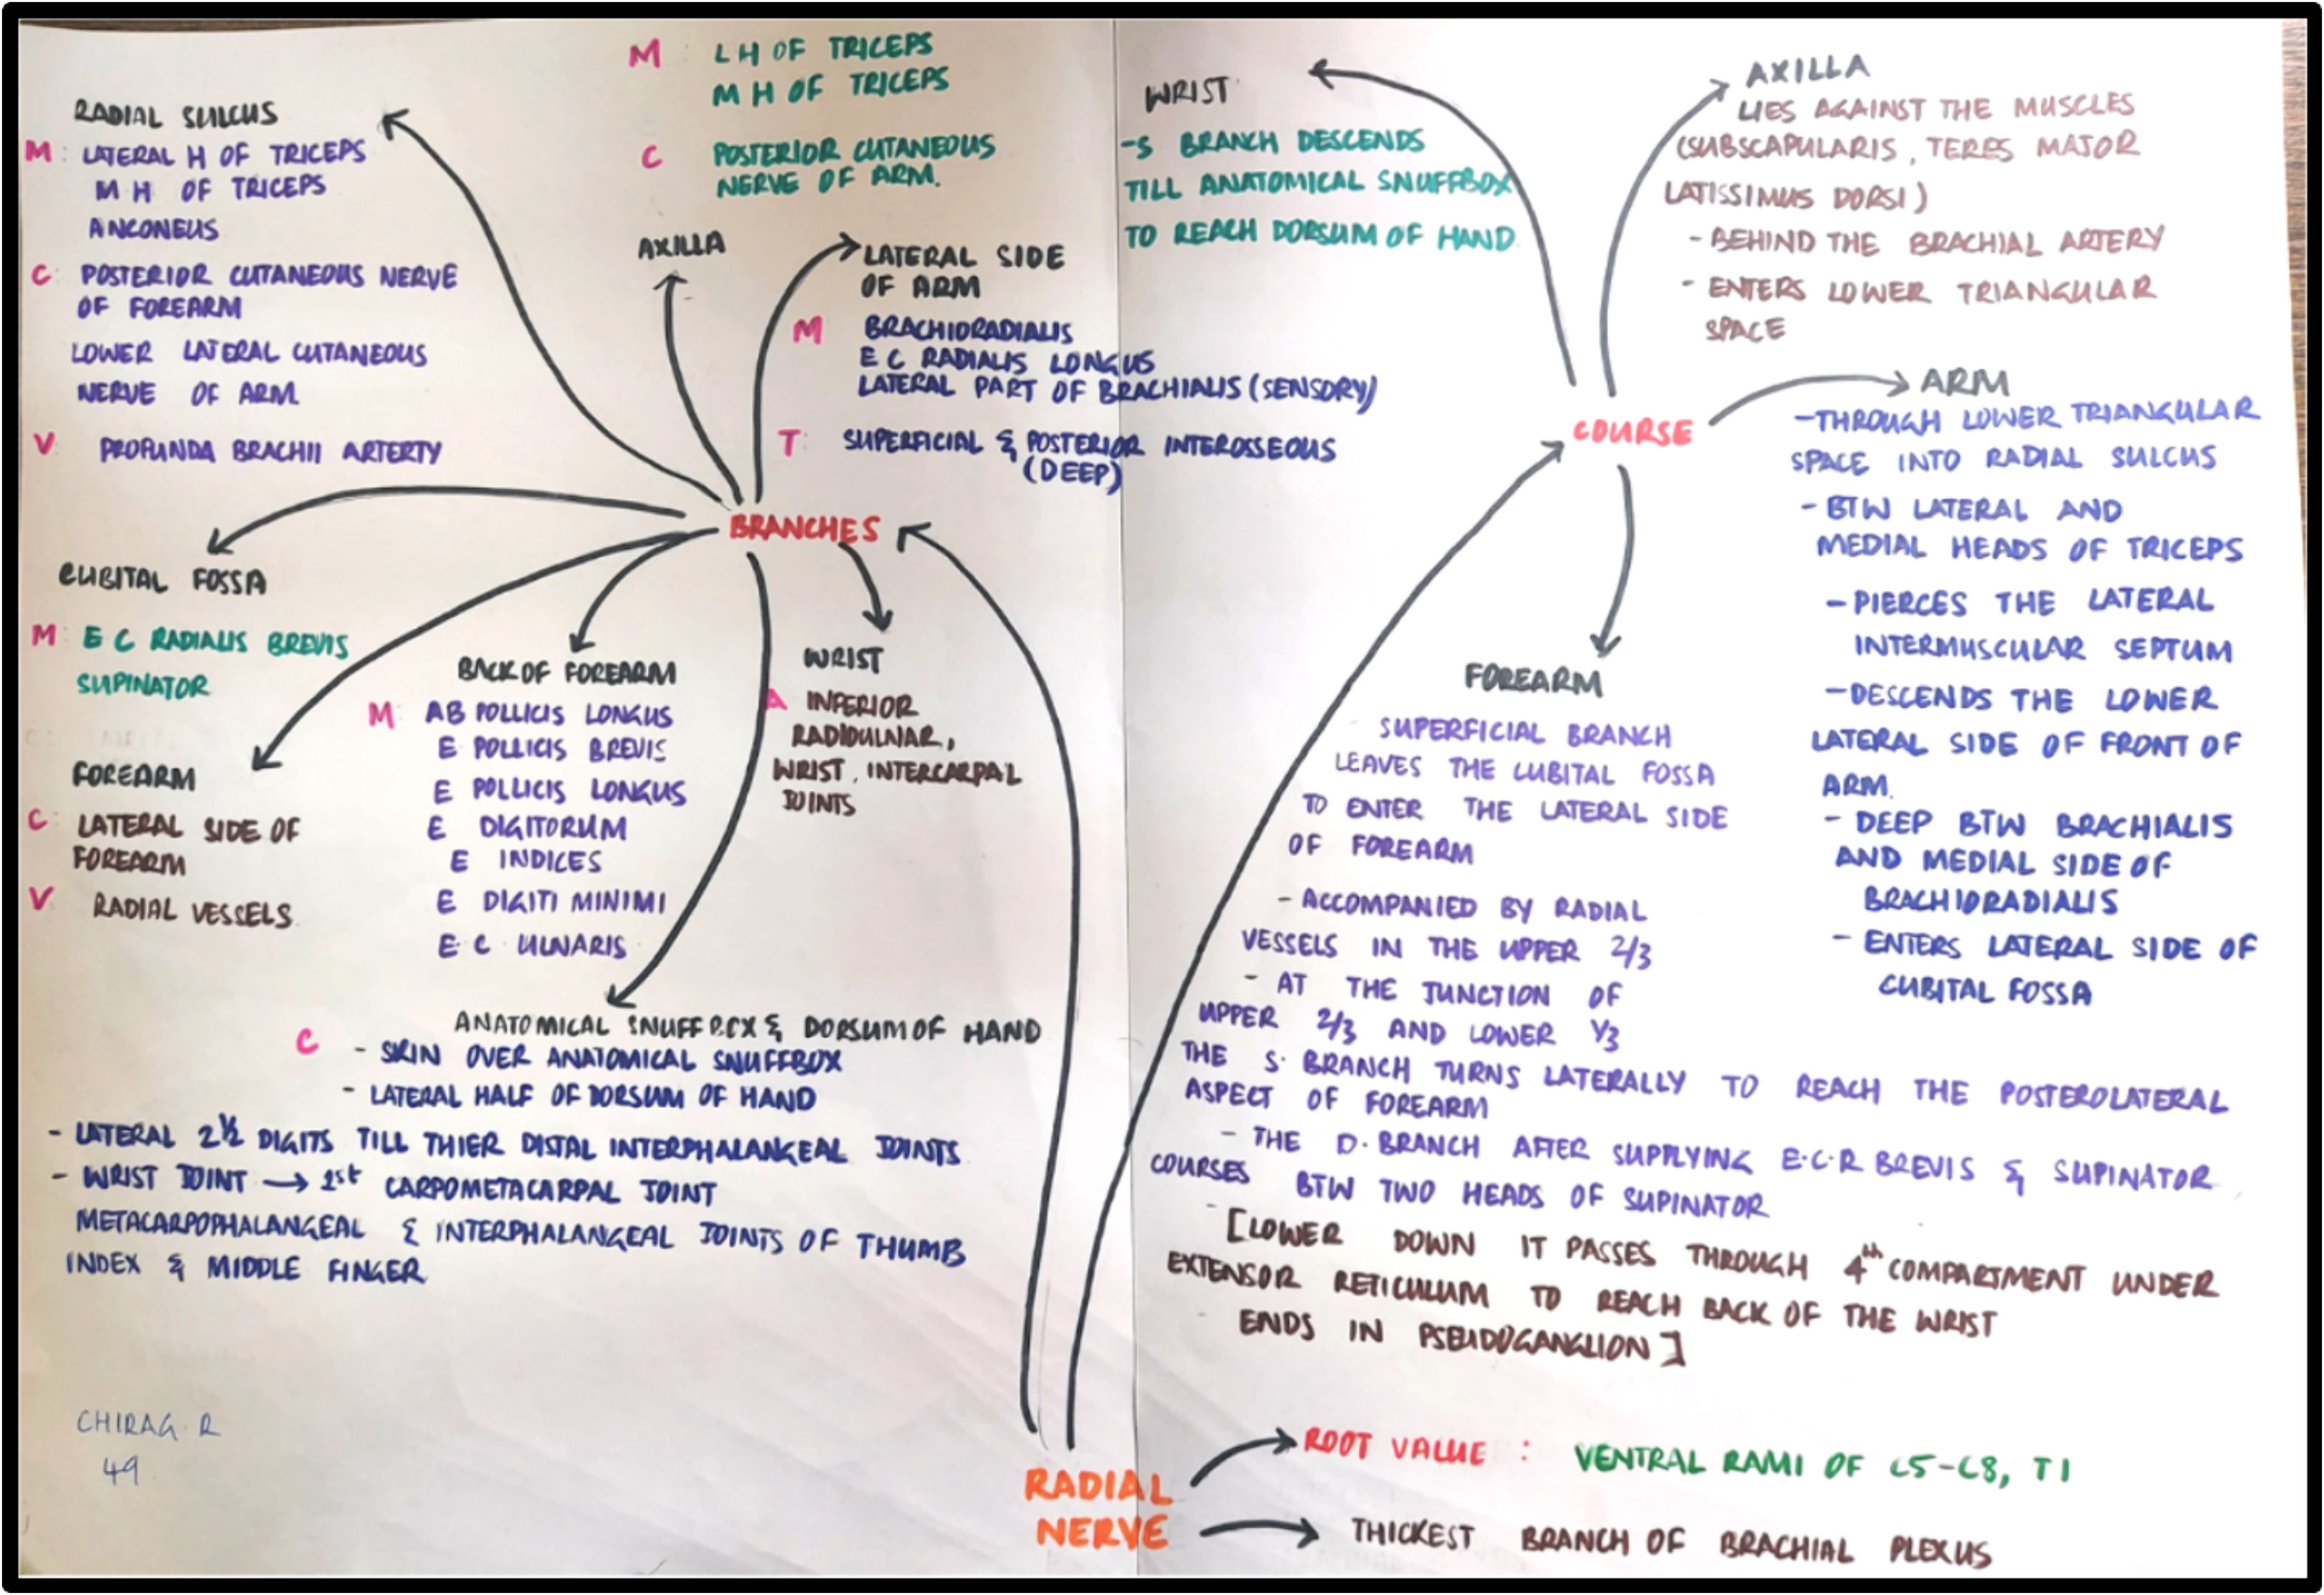 RADIAL SULCUS
M: LATERAL H OF TRICEPS
M H OF TRICEPS
ANCONEUS
C: POSTERIOR CUTANEOUS NERVE
OF FOREARM
LOWER LATERAL CUTANEOUS
NERVE OF ARM
V PROFUNDA BRACHII ARTERTY
M: L H OF TRICEPS
M H OF TRICEPS
C POSTERIOR CUTANEOUS
NERVE OF ARM.
AXILLA
LATERAL SIDE
OF ARM
M BRACHIORADIALIS
E C RADIALIS LONGUS
LATERAL PART OF BRACHIALIS (SENSORY)
T: SUPERFICIAL & POSTERIOR INTEROSSEOUS
(DEEP)
BRANCHES
CUBITAL FOSSA
M: E C RADIALIS BREVIS
SUPINATOR
FOREARM
C: LATERAL SIDE OF
FOREARM
V RADIAL VESSELS
BACK OF FOREARM
M: AB POLLICIS LONGUS
E POLLICIS BREVIS
E POLLICIS LONGUS
E DIGITORUM
E INDICES
E DIGITI MINIMI
E.C. ULNARIS
WRIST
A INFERIOR
RADIOULNAR,
WRIST, INTERCARPAL
JOINTS
ANATOMICAL SNUFFBOX & DORSUM OF HAND
C - SKIN OVER ANATOMICAL SNUFFBOX
- LATERAL HALF OF DORSUM OF HAND
- LATERAL 2½ DIGITS TILL THIER DISTAL INTERPHALANGEAL JOINTS
- WRIST JOINT → 1st CARPOMETACARPAL JOINT
METACARPOPHALANGEAL & INTERPHALANGEAL JOINTS OF THUMB
INDEX & MIDDLE FINGER
CHIRAG.R
49
WRIST
-S BRANCH DESCENDS
TILL ANATOMICAL SNUFFBOX
TO REACH DORSUM OF HAND
AXILLA
LIES AGAINST THE MUSCLES
(SUBSCAPULARIS, TERES MAJOR
LATISSIMUS DORSI)
- BEHIND THE BRACHIAL ARTERY
- ENTERS LOWER TRIANGULAR
SPACE
COURSE
ARM
- THROUGH LOWER TRIANGULAR
SPACE INTO RADIAL SULCUS
- BTW LATERAL AND
MEDIAL HEADS OF TRICEPS
- PIERCES THE LATERAL
INTERMUSCULAR SEPTUM
- DESCENDS THE LOWER
LATERAL SIDE OF FRONT OF
ARM.
- DEEP BTW BRACHIALIS
AND MEDIAL SIDE OF
BRACHIORADIALIS
- ENTERS LATERAL SIDE OF
CUBITAL FOSSA
FOREARM
SUPERFICIAL BRANCH
LEAVES THE CUBITAL FOSSA
TO ENTER THE LATERAL SIDE
OF FOREARM
- ACCOMPANIED BY RADIAL
VESSELS IN THE UPPER 2/3
- AT THE JUNCTION OF
UPPER 2/3 AND LOWER 1/3
THE S. BRANCH TURNS LATERALLY TO REACH THE POSTEROLATERAL
ASPECT OF FOREARM
- THE D. BRANCH AFTER SUPPLYING E.C.R BREVIS & SUPINATOR
COURSES BTW TWO HEADS OF SUPINATOR
- [LOWER DOWN IT PASSES THROUGH 4th COMPARTMENT UNDER
EXTENSOR RETICULUM TO REACH BACK OF THE WRIST
ENDS IN PSEUDOGANGLION]
RADIAL
NERVE
ROOT VALUE : VENTRAL RAMI OF C5-C8, T1
THICKEST BRANCH OF BRACHIAL PLEXUS